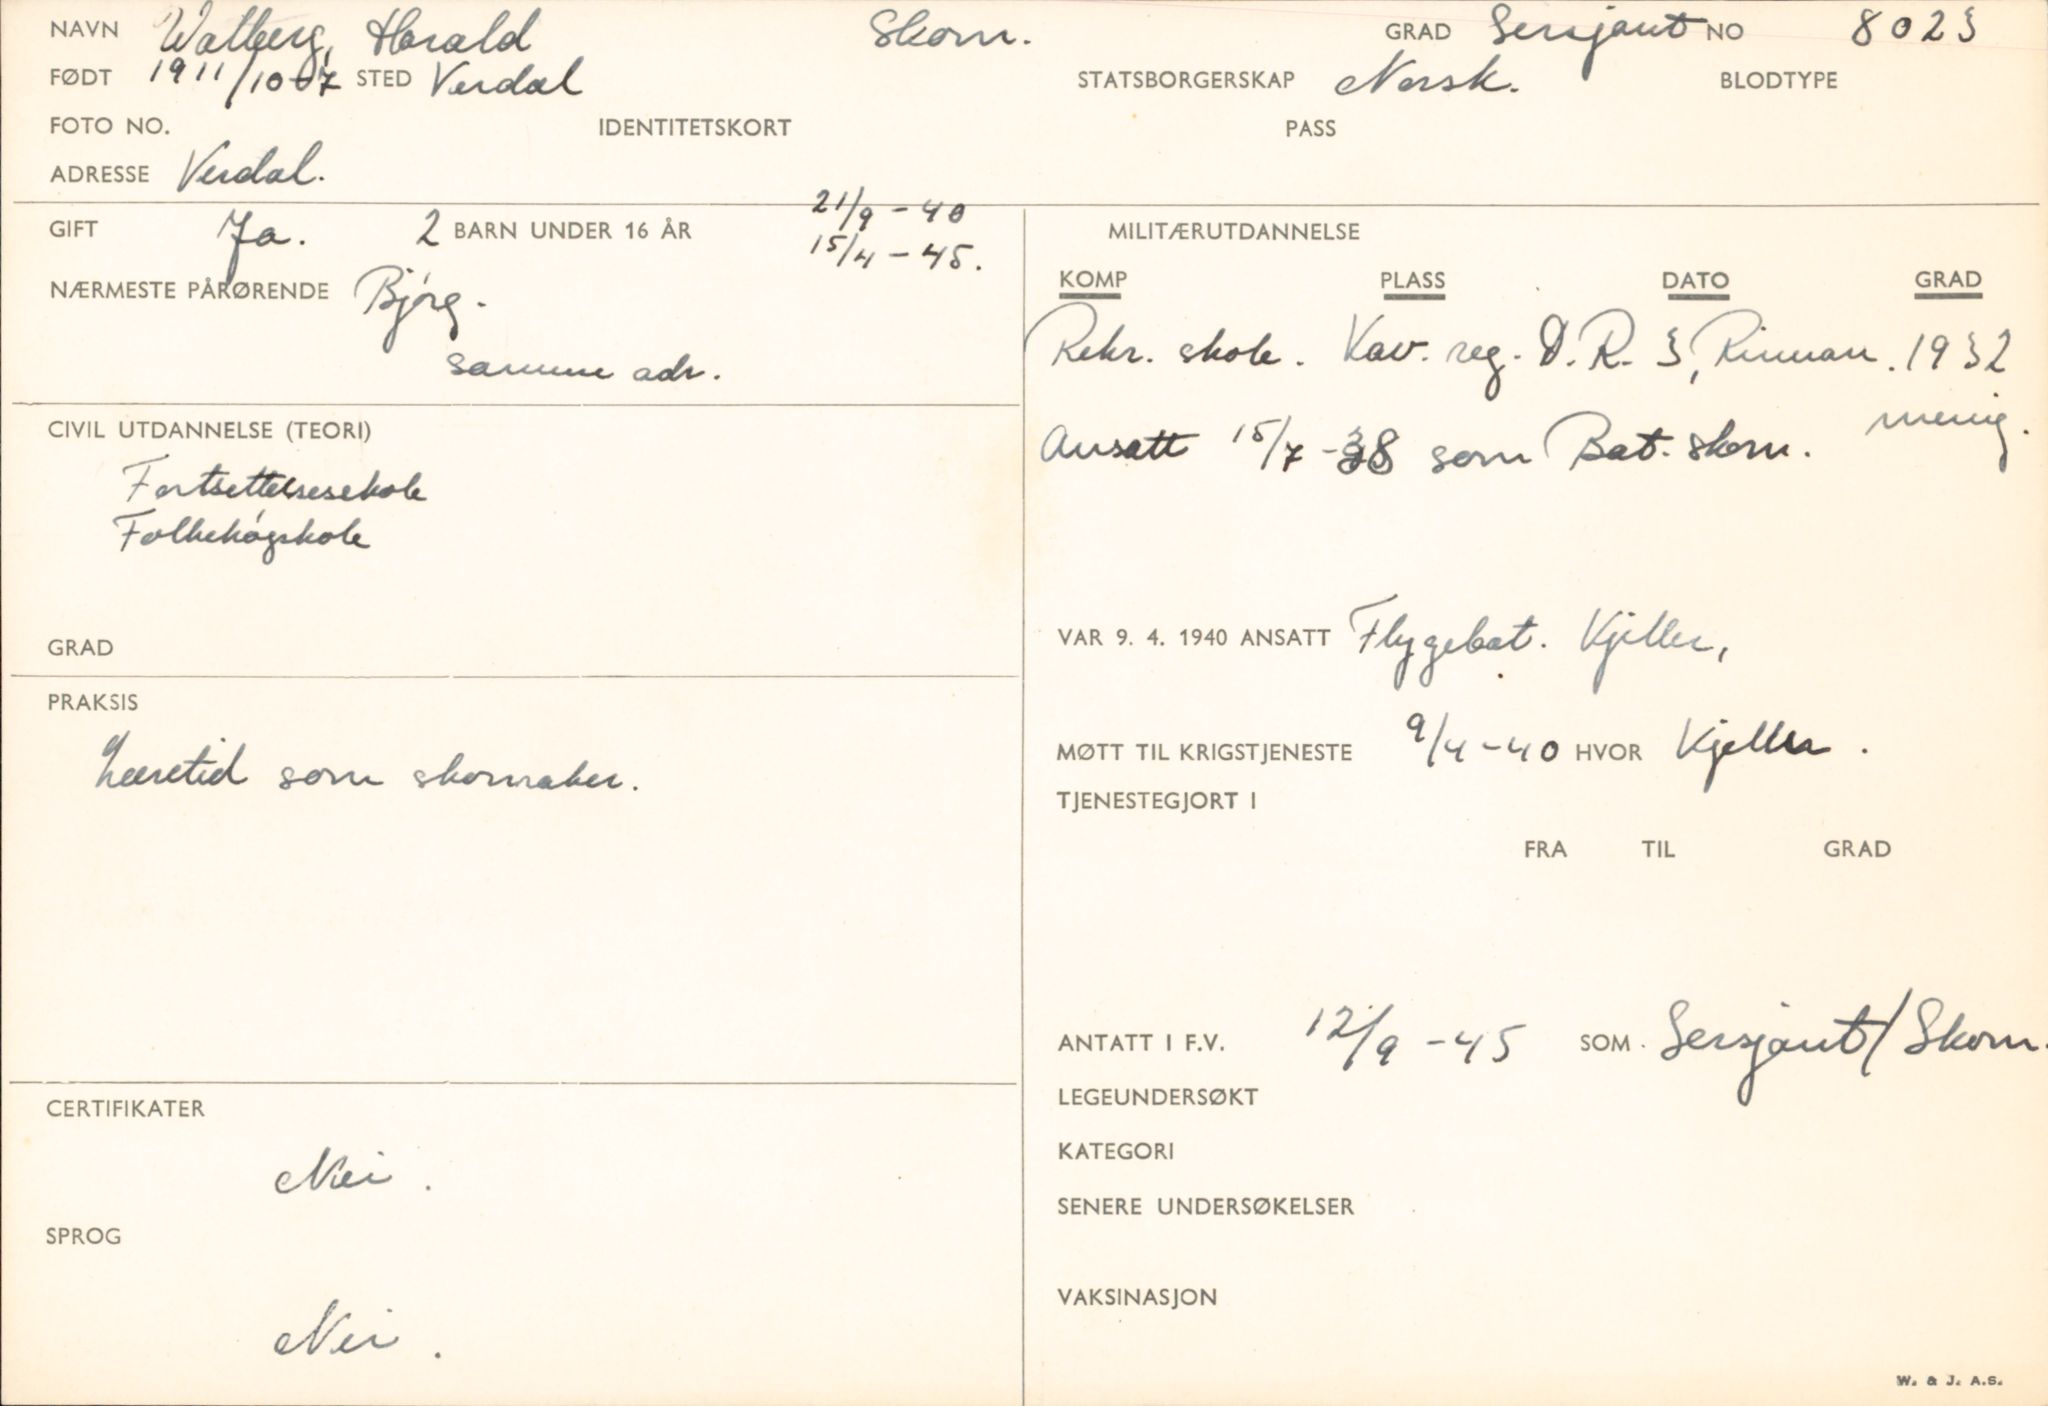 NAVN Walberg, Harald Skom. GRAD Sersjant NO 8023
FØDT 1911/10-7 STED Verdal STATSBORGERSKAP Norsk. BLODTYPE
FOTO NO. IDENTITETSKORT PASS
ADRESSE Verdal.
GIFT Ja. 2 BARN UNDER 16 ÅR 21/9-40
15/4-45.
NÆRMESTE PÅRØRENDE Bjørg.
samme adr.
CIVIL UTDANNELSE (TEORI)
Fortsettelsesskole
Folkehøgskole
GRAD
PRAKSIS
Læretid som skomaker.
CERTIFIKATER
Nei.
SPROG
Nei.
MILITÆRUTDANNELSE
KOMP PLASS DATO GRAD
Rekr. skole. Kav. reg. D.R. 3, Rinnan. 1932
menig.
Ansatt 15/7-38 som Bat. skom.
VAR 9. 4. 1940 ANSATT Flygebat. Kjeller,
MØTT TIL KRIGSTJENESTE 9/4-40 HVOR Kjeller.
TJENESTEGJORT I
FRA TIL GRAD
ANTATT I F.V. 12/9-45 SOM Sersjant/Skom.
LEGEUNDERSØKT
KATEGORI
SENERE UNDERSØKELSER
VAKSINASJON
W. & J. A.S.